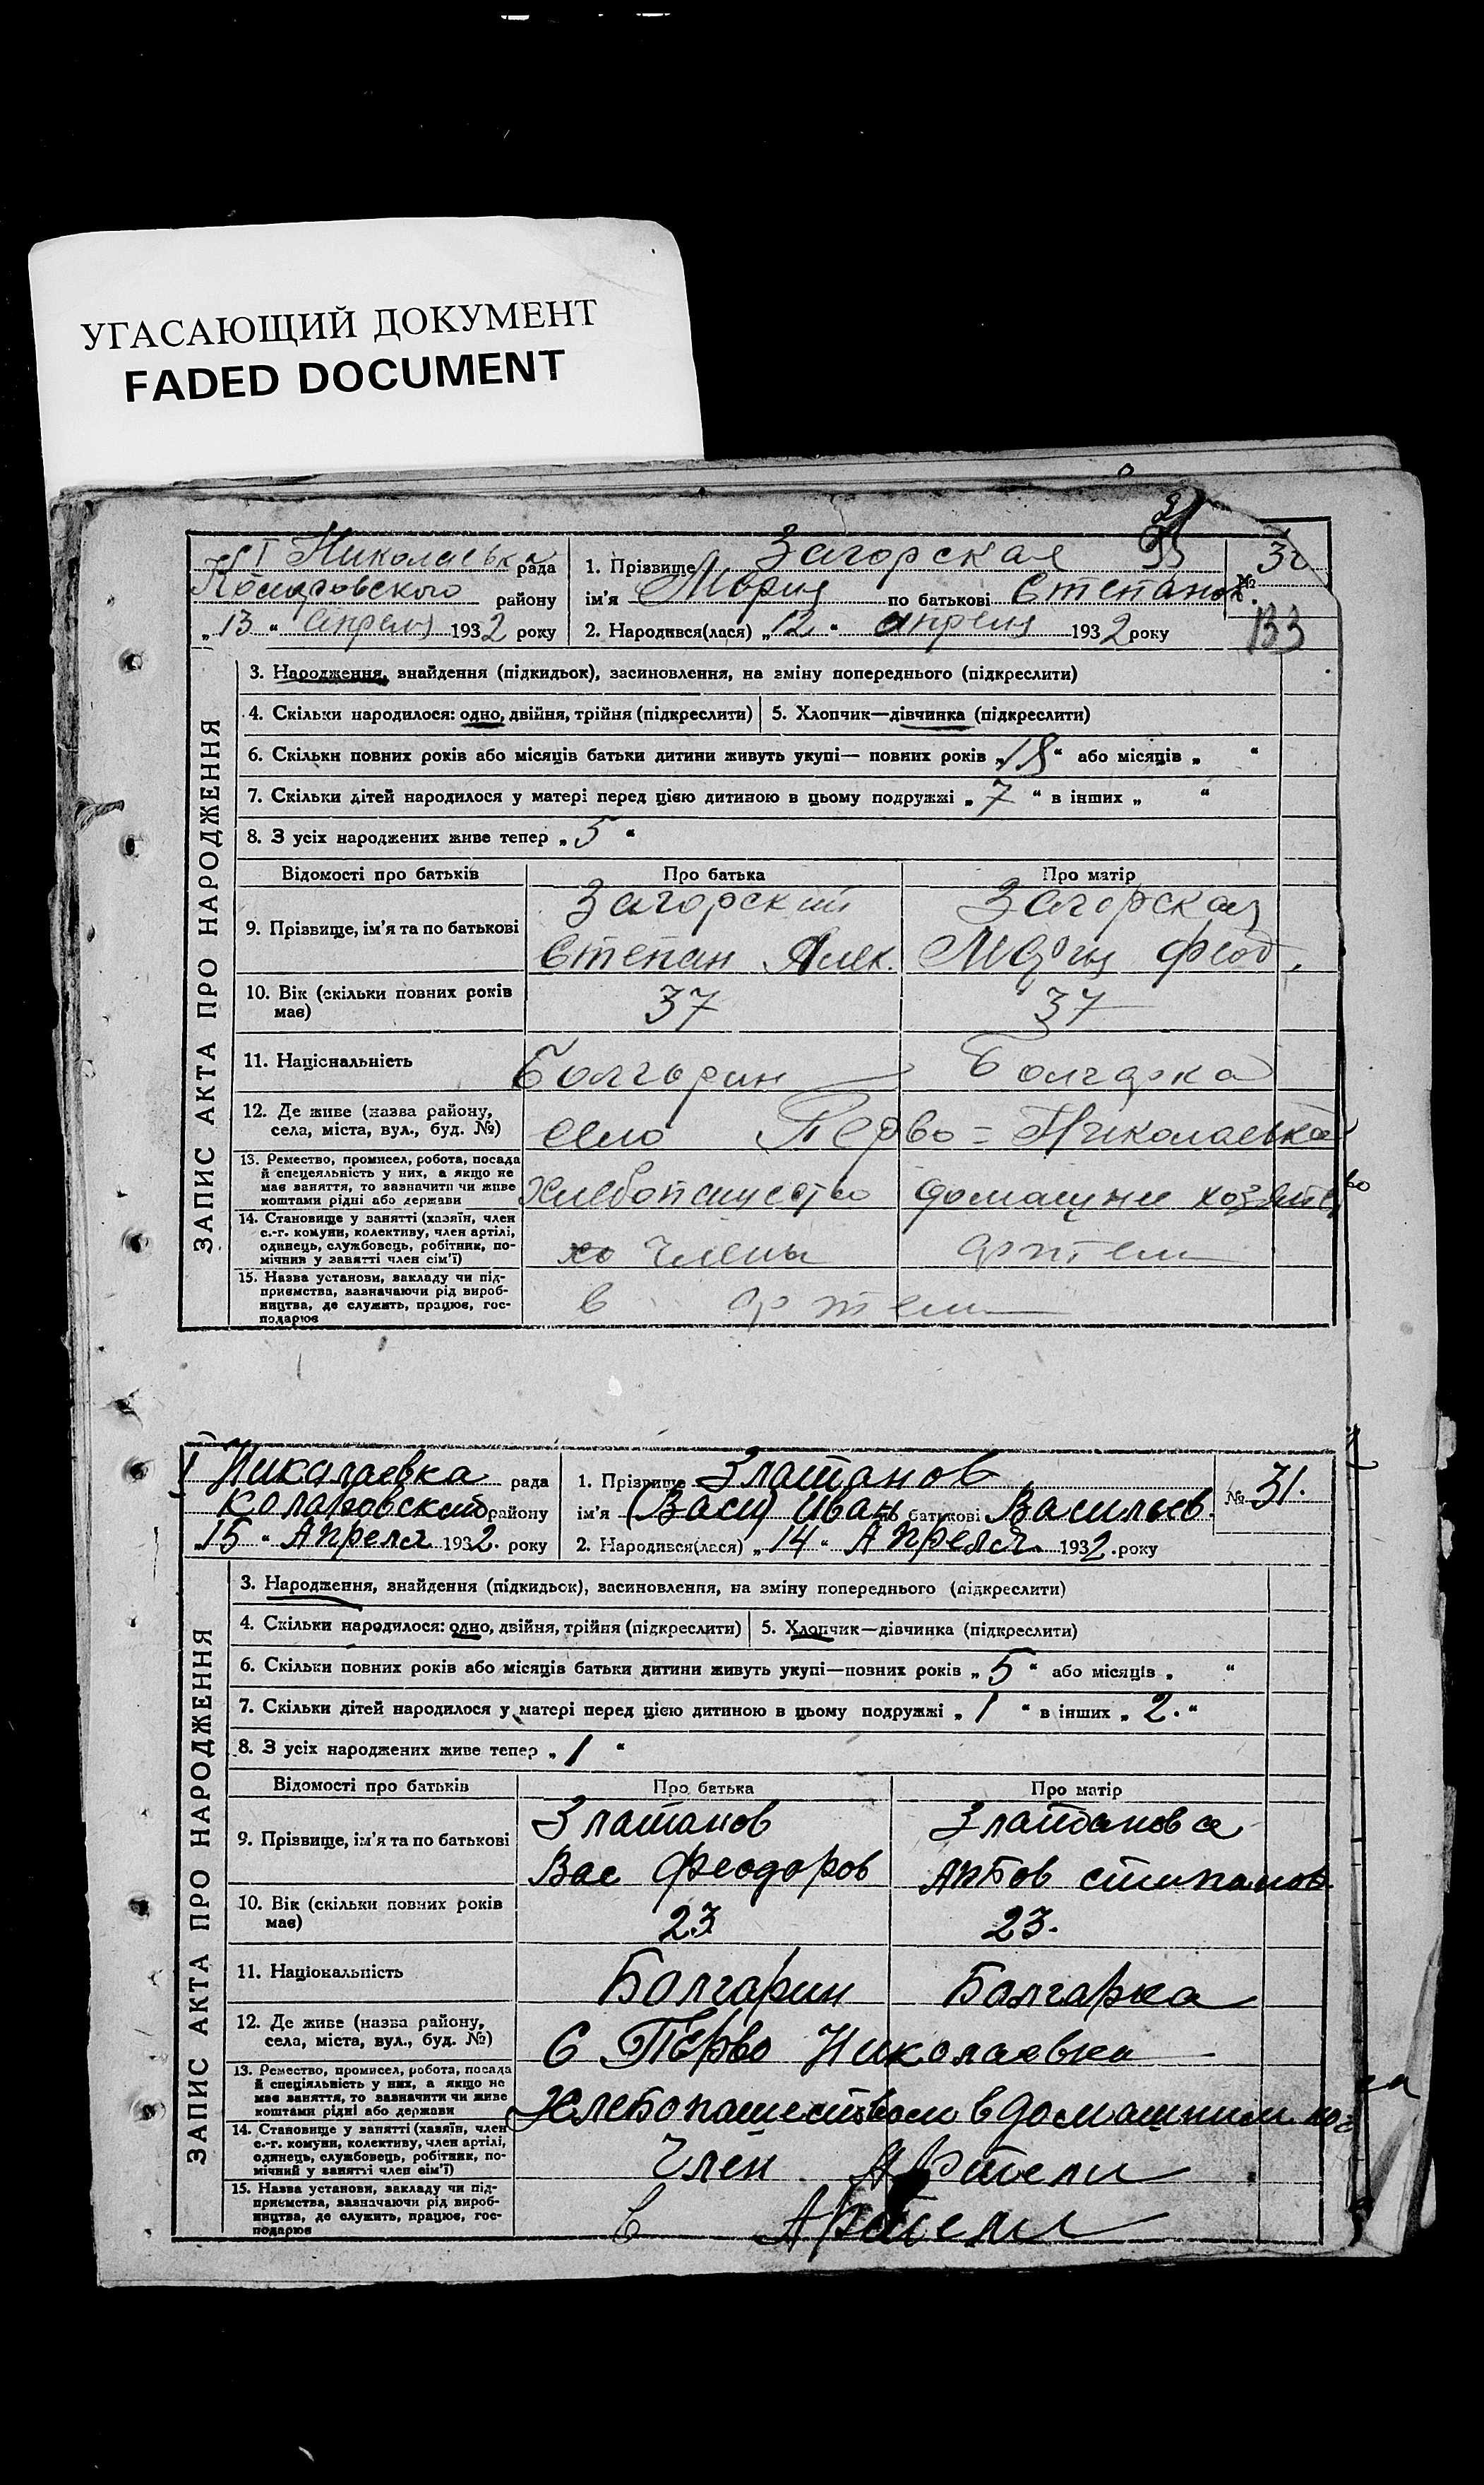 УГАСАЮЩИЙ ДОКУМЕНТ
FADED DOCUMENT
I Николаевка рада
района району
„13“ Апреля 1932 року
1. Прізвище Загорская
ім'я Мария по батькові Степанов.
2. Народився(лася) „12“ апреля 1932 року
№ 30
133
ЗАПИС АКТА ПРО НАРОДЖЕННЯ
3. Народження, знайдення (підкидьок), засиновлення, на зміну попереднього (підкреслити)
4. Скільки народилося: одно, двійня, трійня (підкреслити) 5. Хлопчик—дівчинка (підкреслити)
6. Скільки повних років або місяців батьки дитини живуть укупі— повних років „18“ або місяців „ “
7. Скільки дітей народилося у матері перед цією дитиною в цьому подружжі „7“ в інших „ “
8. З усіх народжених живе тепер „5“
Відомості про батьків Про батька Про матір
9. Прізвище, ім'я та по батькові
Загорский Загорская
Степан Алек. Мария Феод.
10. Вік (скільки повних років має) 37 37
11. Національність Болгарин Болгарка
12. Де живе (назва району, села, міста, вул., буд. №) село Перво=Николаевка
13. Ремество, промисел, робота, посада
й спецеяльність у них, а якщо не
має заняття, то зазначити чи живе
коштами рідні або держави
Хлебопашество домашнее хозяйство
14. Становище у занятті (хазяїн, член
с.-г. комуни, колективу, член артілі,
одинець, службовець, робітник, по-
мічник у занятті член сім'ї)
члены артели
15. Назва установи, закладу чи під-
приємства, зазначаючи рід вироб-
ництва, де служить, працює, гос-
подарює
в артели
I Николаевка рада
Коларовский району
15 “ Апреля 1932. року
1. Прізвище Златанов
ім'я (Васи) Иван по батькові Васильев.
2. Народився(лася) „14“ Апреля 1932. року
№ 31.
ЗАПИС АКТА ПРО НАРОДЖЕННЯ
3. Народження, знайдення (підкидьок), засиновлення, на зміну попереднього (підкреслити)
4. Скільки народилося: одно, двійня, трійня (підкреслити) 5. Хлопчик—дівчинка (підкреслити)
6. Скільки повних років або місяців батьки дитини живуть укупі—повних років „5“ або місяців „ “
7. Скільки дітей народилося у матері перед цією дитиною в цьому подружжі „1“ в інших „2.“
8. З усіх народжених живе тепер „1“
Відомості про батьків Про батька Про матір
9. Прізвище, ім'я та по батькові
Златанов Златанова
Вас Феодоров
10. Вік (скільки повних років має) 23 23.
11. Національність Болгарин Болгарка
12. Де живе (назва району, села, міста, вул., буд. №) С Перво Николаевка
13. Ремество, промисел, робота, посада
й спеціяльність у них, а якщо не
має заняття, то зазначити чи живе
коштами рідні або держави
Хлебопашеством в домашним хоз
14. Становище у занятті (хазяїн, член
с.-г. комуни, колективу, член артілі,
одинець, службовець, робітник, по-
мічний у занятті член сім'ї)
Член Артели
15. Назва установи, закладу чи під-
приємства, зазначаючи рід вироб-
ництва, де служить, працює, гос-
подарює
в Артели